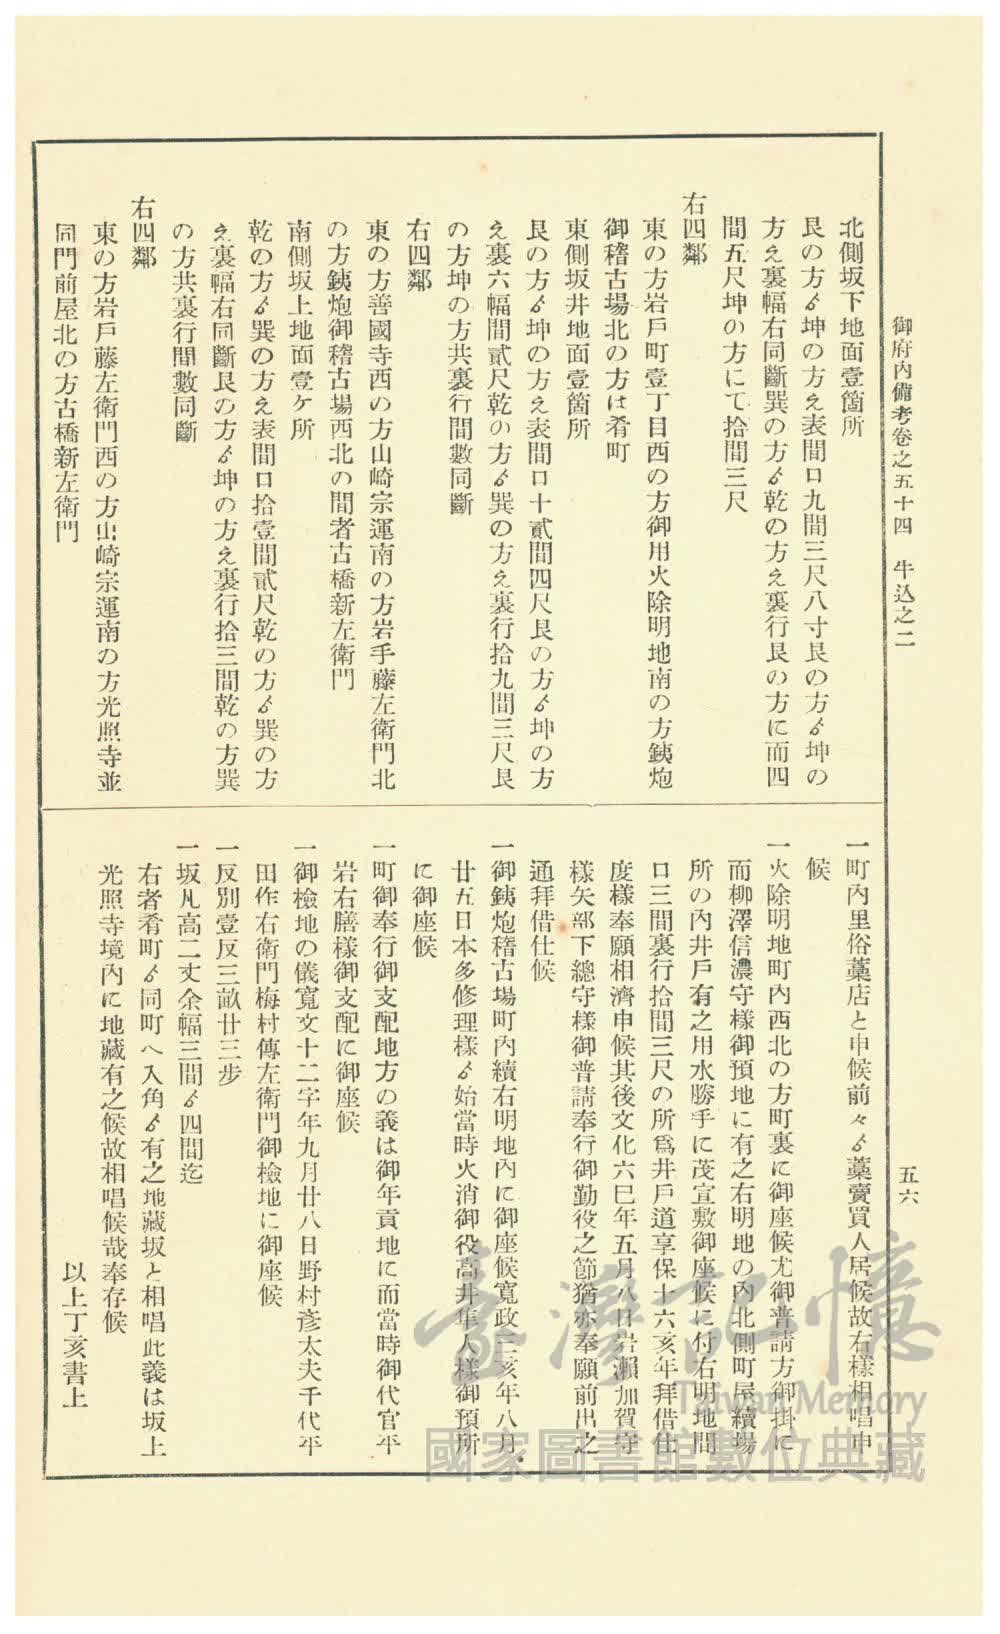 御府內備考卷之五十四　牛込之二
五六
北側坂下地面壹箇所
艮の方ゟ坤の方え表間口九間三尺八寸艮の方ゟ坤の
方え裏幅右同斷巽の方ゟ乾の方え裏行艮の方に而四
間五尺坤の方にて拾間三尺
右四鄰
東の方岩戶町壹丁目西の方御用火除明地南の方銕炮
御稽古場北の方は肴町
東側坂井地面壹箇所
艮の方ゟ坤の方え表間口十貳間四尺艮の方ゟ坤の方
え裏六幅間貳尺乾の方ゟ巽の方え裏行拾九間三尺艮
の方坤の方共裏行間數同斷
右四鄰
東の方善國寺西の方山崎宗運南の方岩手藤左衛門北
の方銕炮御稽古場西北の間者古橋新左衛門
南側坂上地面壹ケ所
乾の方ゟ巽の方え表間口拾壹間貳尺乾の方ゟ巽の方
え裏幅右同斷艮の方ゟ坤の方え裏行拾三間乾の方巽
の方共裏行間數同斷
右四鄰
東の方岩戶藤左衛門西の方山崎宗運南の方光照寺並
同門前屋北の方古橋新左衛門
一町內里俗藁店と申候前々ゟ藁賣買人居候故右樣相唱申
候
一火除明地町內西北の方町裏に御座候尤御普請方御掛に
而柳澤信濃守樣御預地に有之右明地の內北側町屋續場
所の內井戶有之用水勝手に茂宜敷御座候に付右明地間
口三間裏行拾間三尺の所爲井戶道享保十六亥年拜借仕
度樣奉願相濟申候其後文化六巳年五月八日岩瀨加賀守
樣矢部下總守樣御普請奉行御勤役之節猶亦奉願前出之
通拜借仕候
一御銕炮稽古場町內續右明地內に御座候寬政三亥年八月
廿五日本多修理樣ゟ始當時火消御役高井隼人樣御預所
に御座候
一町御奉行御支配地方の義は御年貢地に而當時御代官平
岩右膳樣御支配に御座候
一御檢地の儀寬文十二字年九月廿八日野村彥太夫千代平
田作右衛門梅村傳左衛門御檢地に御座候
一反別壹反三畝廿三步
一坂凡高二丈余幅三間ゟ四間迄
右者肴町ゟ同町へ入角ゟ有之地藏坂と相唱此義は坂上
光照寺境內に地藏有之候故相唱候哉奉存候
以上丁亥書上
臺灣記憶
Taiwan Memory
國家圖書館數位典藏